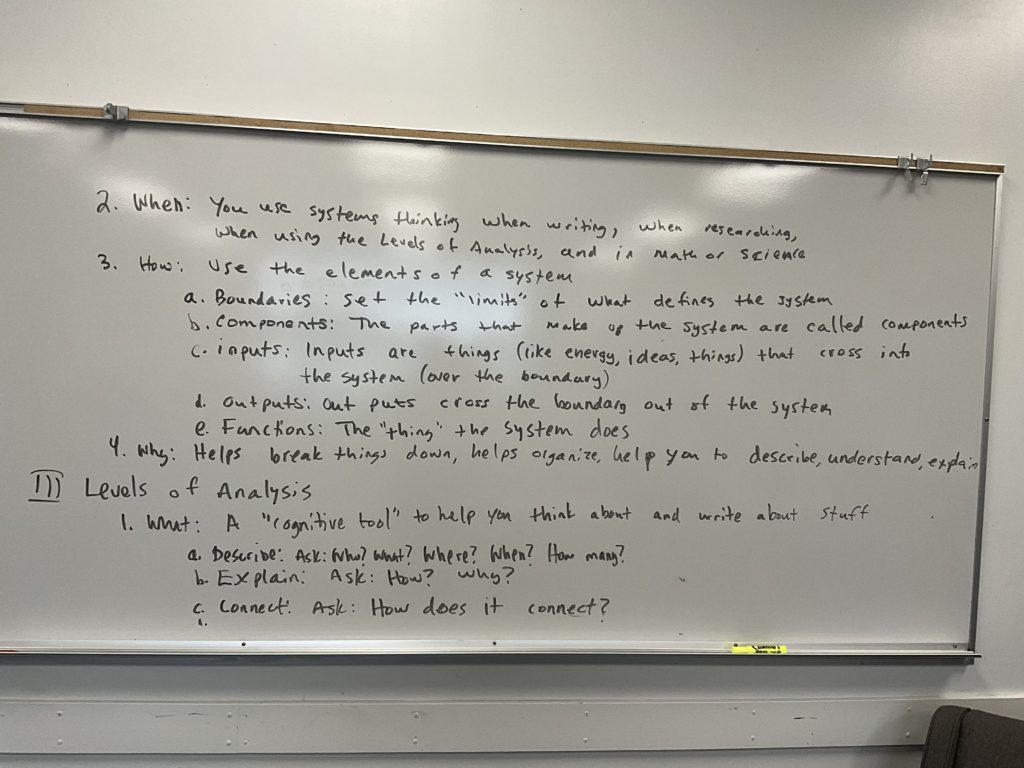 2. When: You use systems thinking when writing, when researching,
when using the Levels of Analysis, and in math or science
3. How: Use the elements of a system
a. Boundaries: set the "limits" of what defines the system
b. Components: The parts that make up the system are called components
c. inputs: Inputs are things (like energy, ideas, things) that cross into
the system (over the boundary)
d. outputs: out puts cross the boundary out of the system
e. Functions: The "thing" the system does
4. Why: Helps break things down, helps organize, help you to describe, understand, explain
III Levels of Analysis
1. What: A "cognitive tool" to help you think about and write about stuff
a. Describe: Ask: Who? What? Where? When? How many?
b. Explain: Ask: How? Why?
c. Connect: Ask: How does it connect?